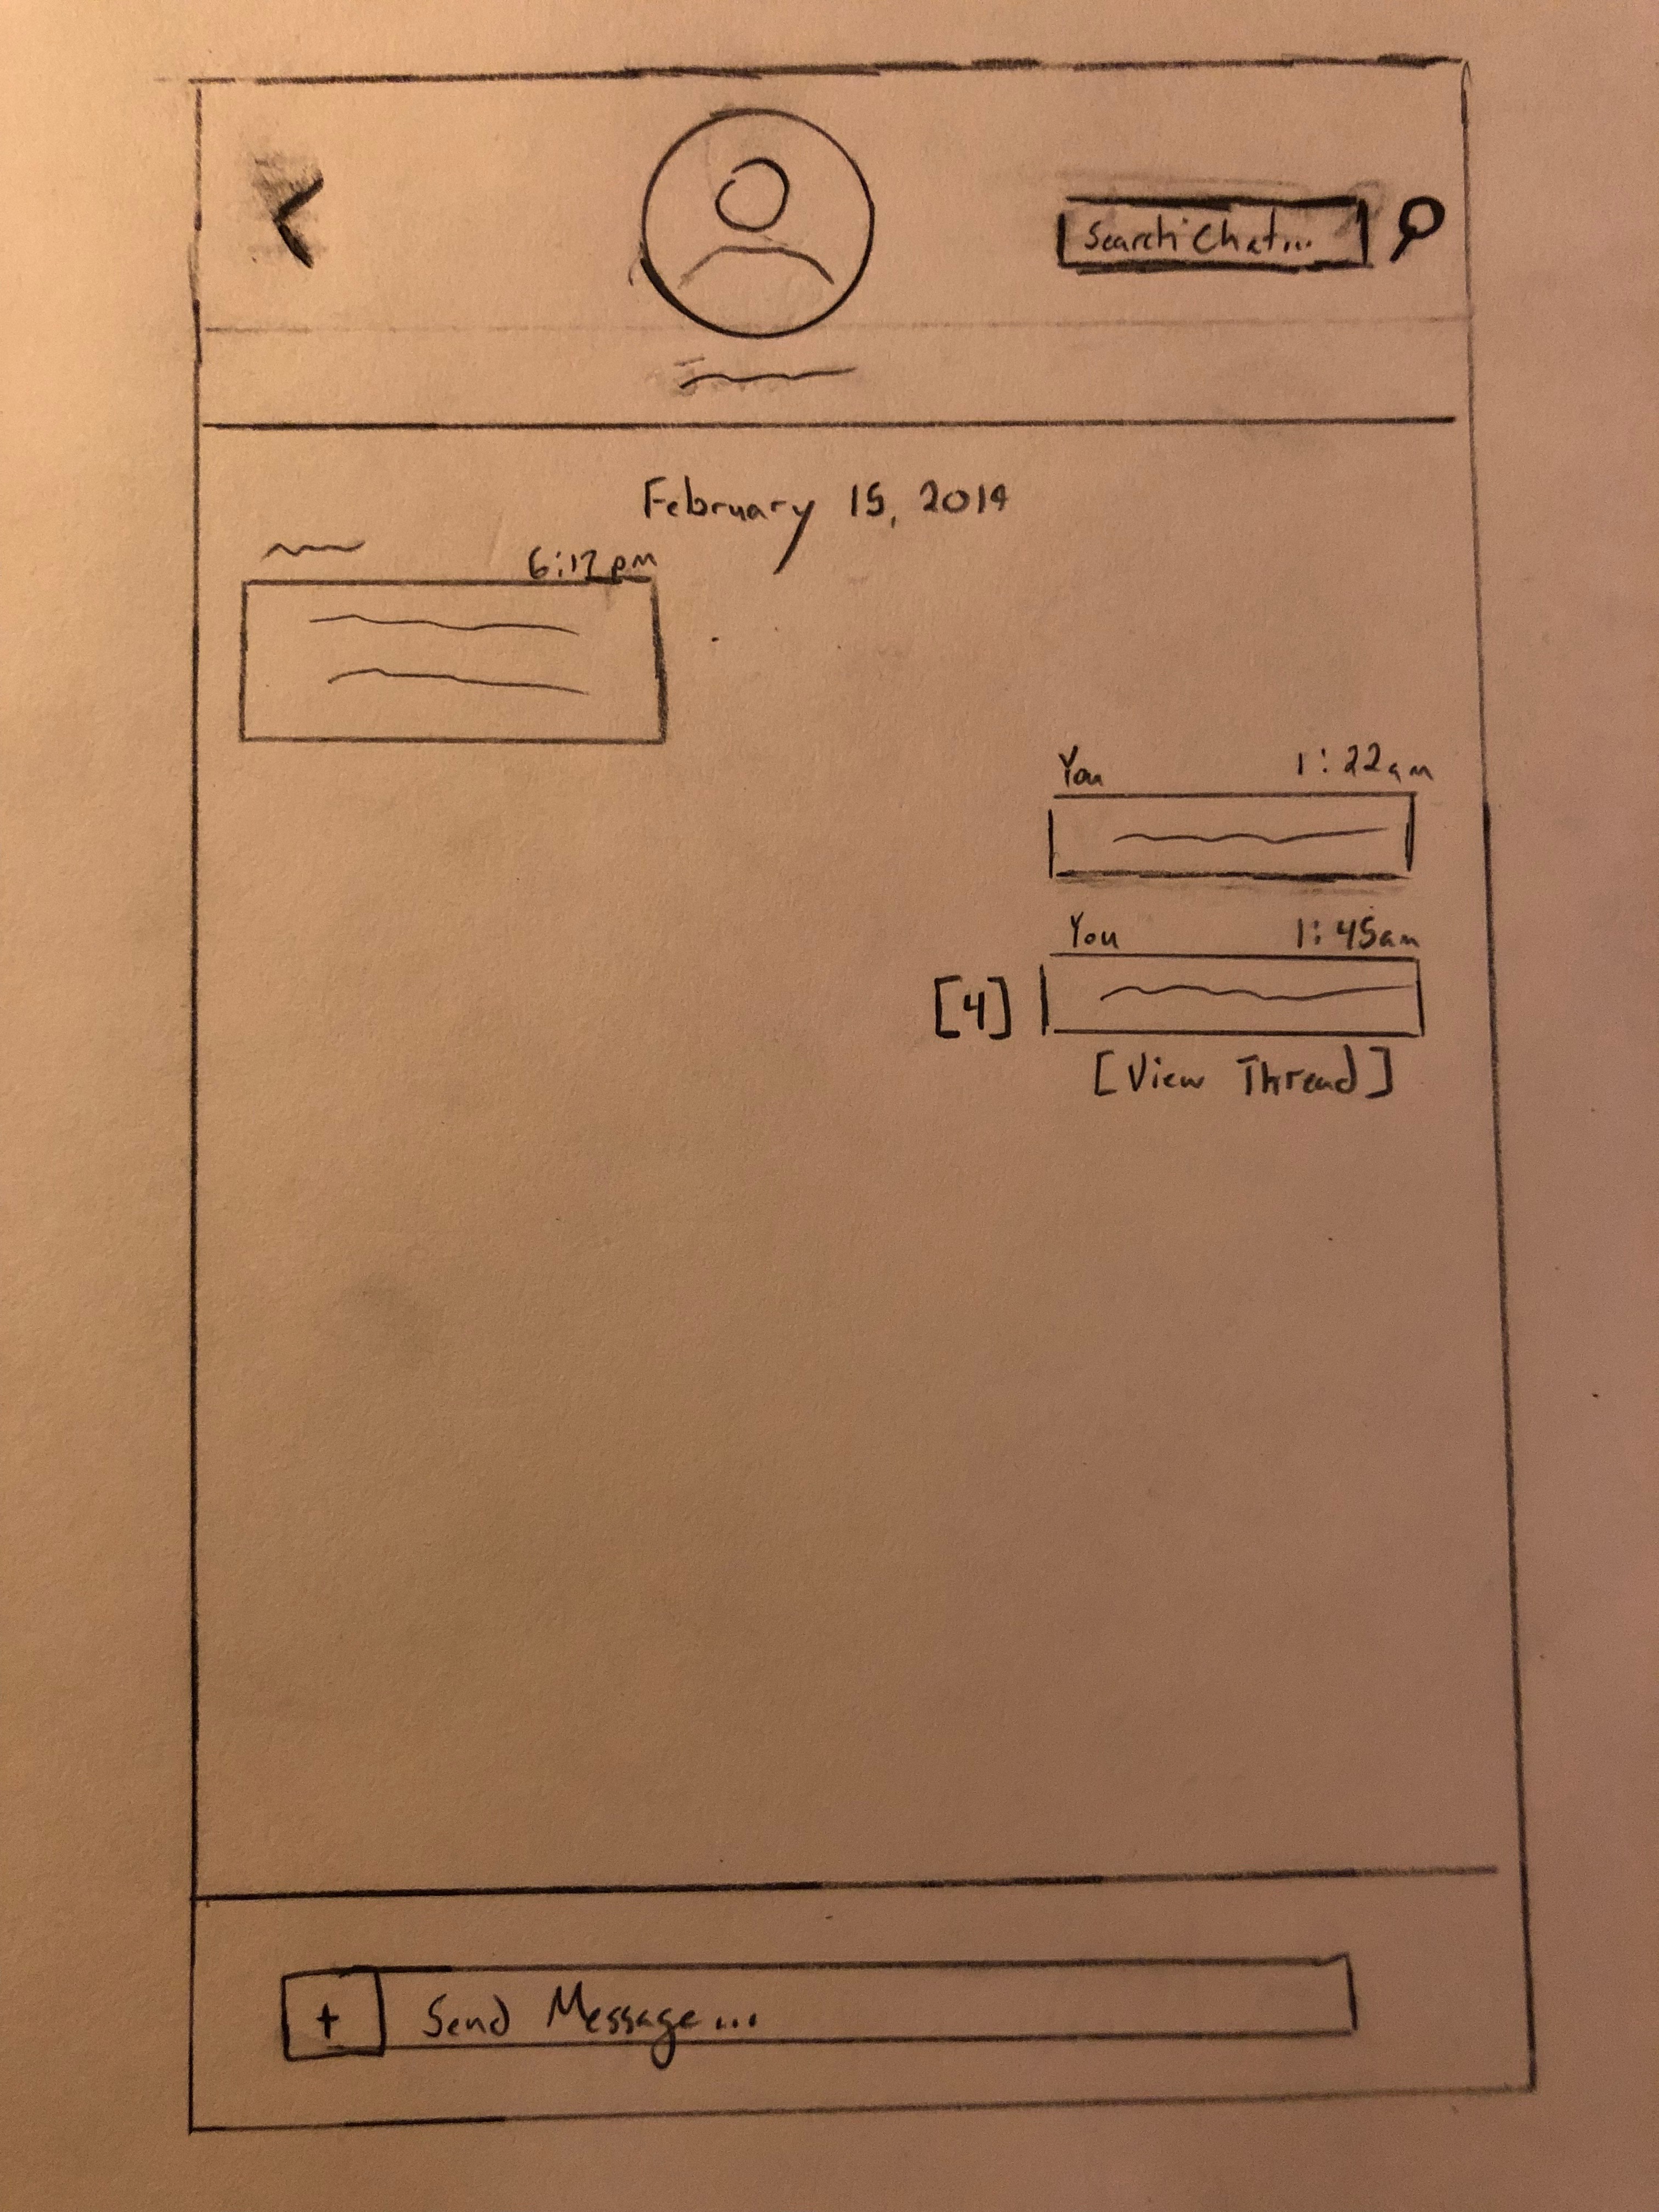 Search Chat...
February 15, 2019
6:17pm
You 1:22am
You 1:45am
[4]
[View Thread]
+ Send Message...